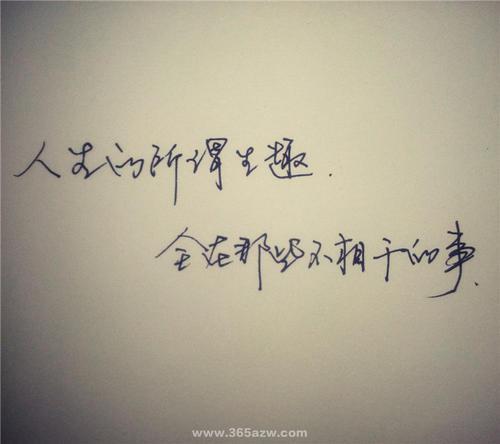 人生的所得生趣.
全在那些不相干的事.
www.365azw.com